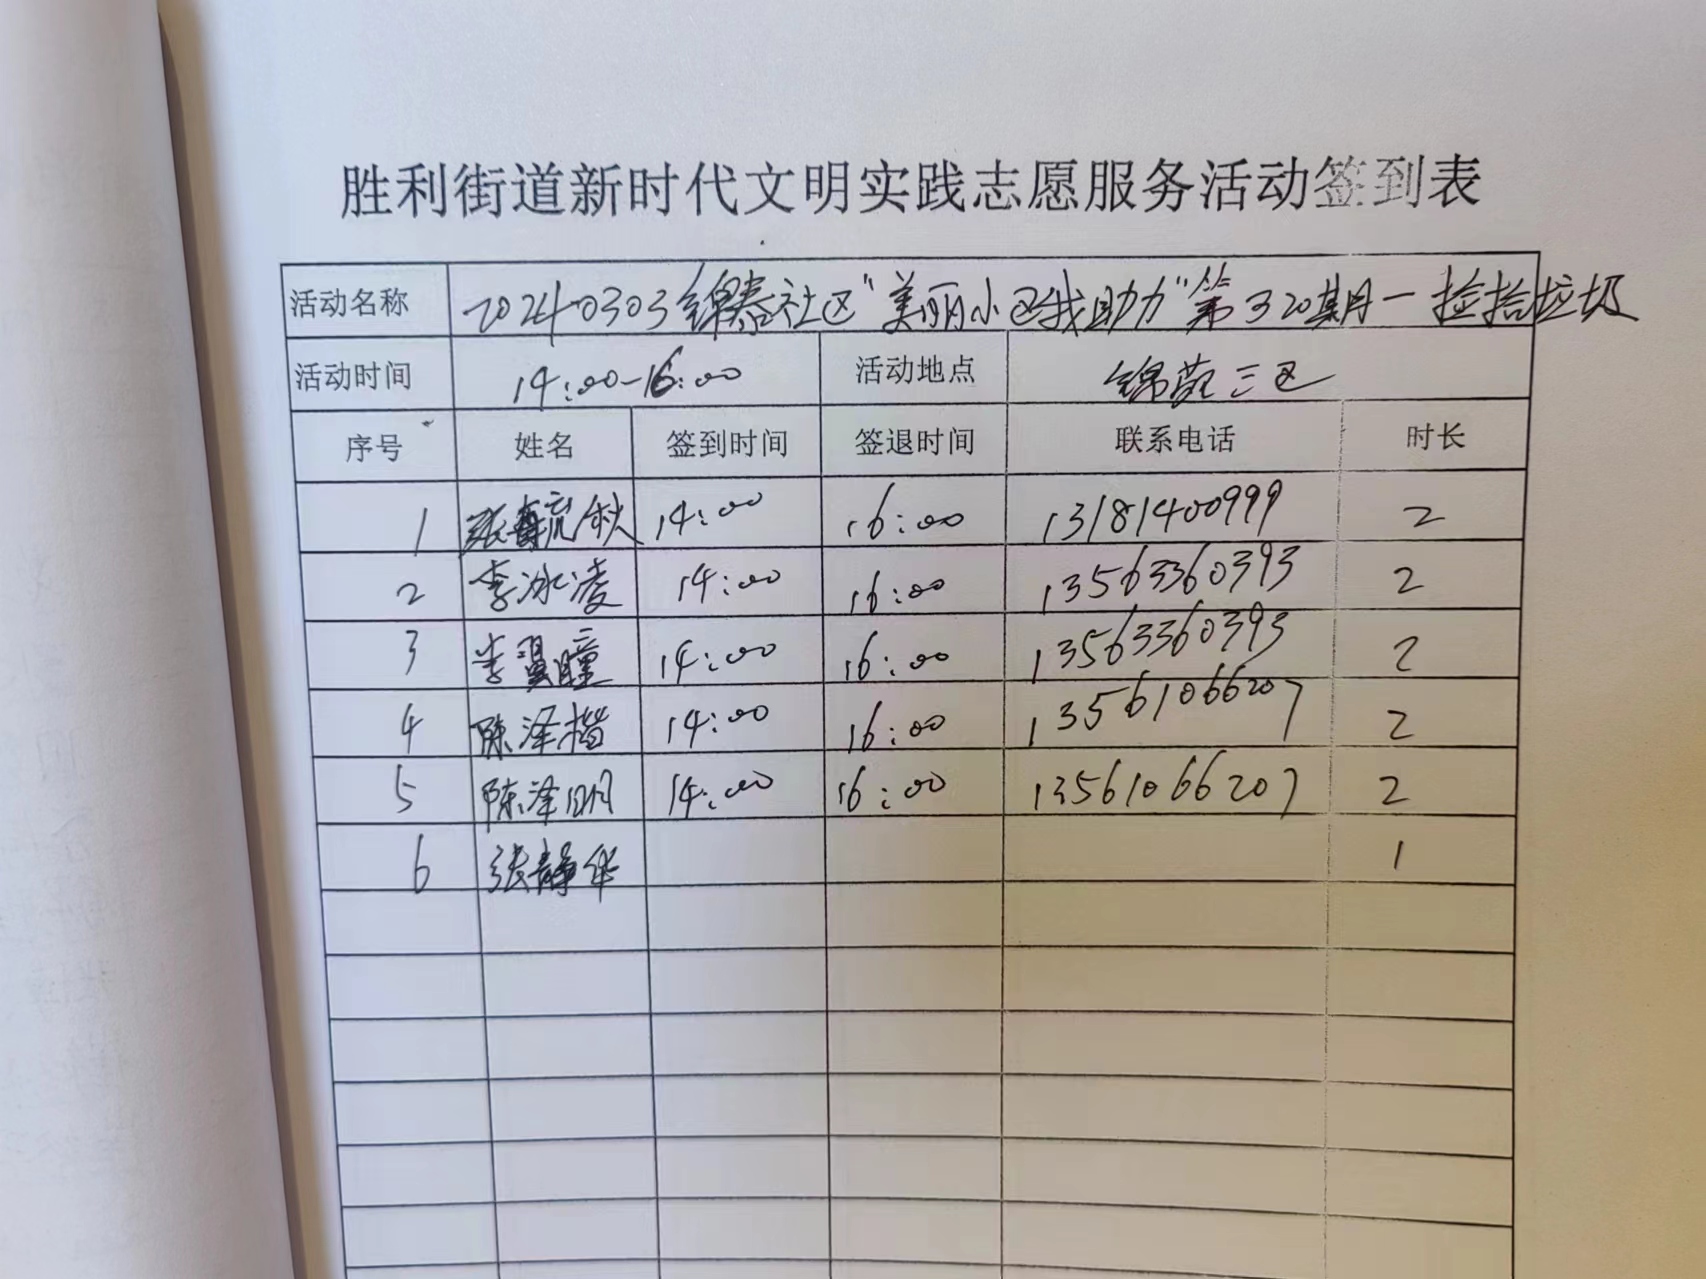 胜利街道新时代文明实践志愿服务活动签到表
活动名称 20240303锦泰社区“美丽小区我助力”第320期一捡拾垃圾
活动时间 14:00-16:00 活动地点 锦苑三区
序号 姓名 签到时间 签退时间 联系电话 时长
1 张毓秋 14:00 16:00 13181400999 2
2 李冰凌 14:00 16:00 13563360393 2
3 李翼瞳 14:00 16:00 13563360393 2
4 陈泽楷 14:00 16:00 13561066207 2
5 陈泽明 14:00 16:00 13561066207 2
6 张静华 1